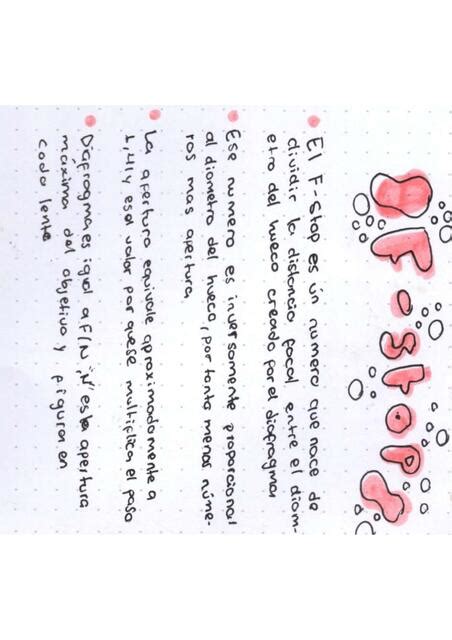 F-stop
El F-Stop es ún numero que nace de
dividir la distancia focal entre el diam-
etro del hueco creado por el diafragma
Ese numero es inversamente proporcional
al diametro del hueco, por tanto menos núme-
ros mas apertura
La apertura equivale aproximadamente a
1,41 y es el valor por que se multiplica el paso
Diafragma es igual a F/N, "N" esta apertura
máxima del objetivo y figura en
cada lente